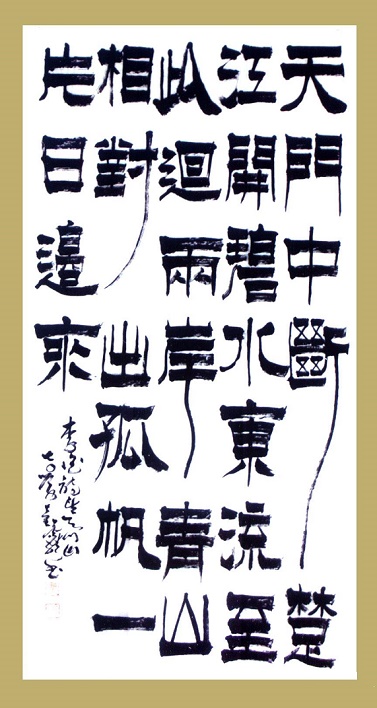 天門中斷楚
江開碧水東流至
此迴兩岸青山
相對出孤帆一
片日邊來
李白詩望天門山
書